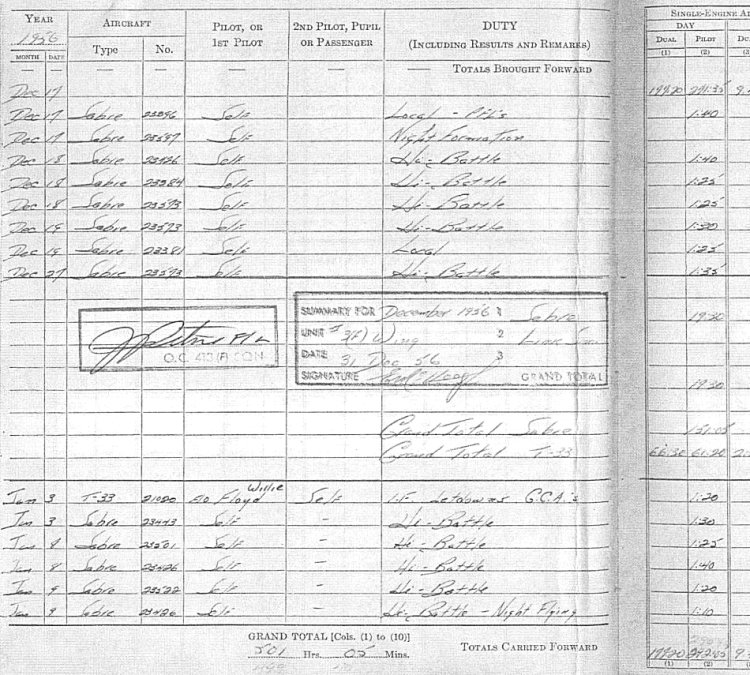 YEAR AIRCRAFT PILOT, OR 1ST PILOT 2ND PILOT, PUPIL OR PASSENGER DUTY (INCLUDING RESULTS AND REMARKS) SINGLE-ENGINE
1956 DAY
MONTH DATE Type No. DUAL PILOT
(1) (2)
— — — — — — TOTALS BROUGHT FORWARD
Dec 17 199:20 291:35
Dec 17 Sabre Self Local - 1:40
Dec 17 Sabre Self Night Formation
Dec 18 Sabre 23426 Self Hi-Battle 1:40
Dec 18 Sabre 23384 Self Hi-Battle 1:25
Dec 18 Sabre 23573 Self Hi-Battle 1:25
Dec 19 Sabre 23573 Self Hi-Battle 1:20
Dec 19 Sabre 23381 Self Local 1:25
Dec 27 Sabre 23573 Self Hi-Battle 1:35
SUMMARY FOR December 1956 1 Sabre 19:30
UNIT # 3(F) Wing 2 Link
O.C. 413(F) SQN
DATE 31 Dec 56 3
SIGNATURE GRAND TOTAL 19:30
Grand Total Sabre
Grand Total T-33 66:30 61:20
Jan 3 T-33 21020 F/O Floyd Willie Self I.F. Letdowns G.C.A.'s 1:20
Jan 3 Sabre 23443 Self — Hi-Battle 1:30
Jan 8 Sabre 23501 Self — Hi-Battle 1:25
Jan 8 Sabre 23426 Self — Hi-Battle 1:40
Jan 9 Sabre 23522 Self — Hi-Battle 1:20
Jan 9 Sabre 23426 Self — Hi-Battle - Night Flying 1:10
GRAND TOTAL [Cols. (1) to (10)]
501 Hrs. 05 Mins. TOTALS CARRIED FORWARD 199:20
(1) (2)